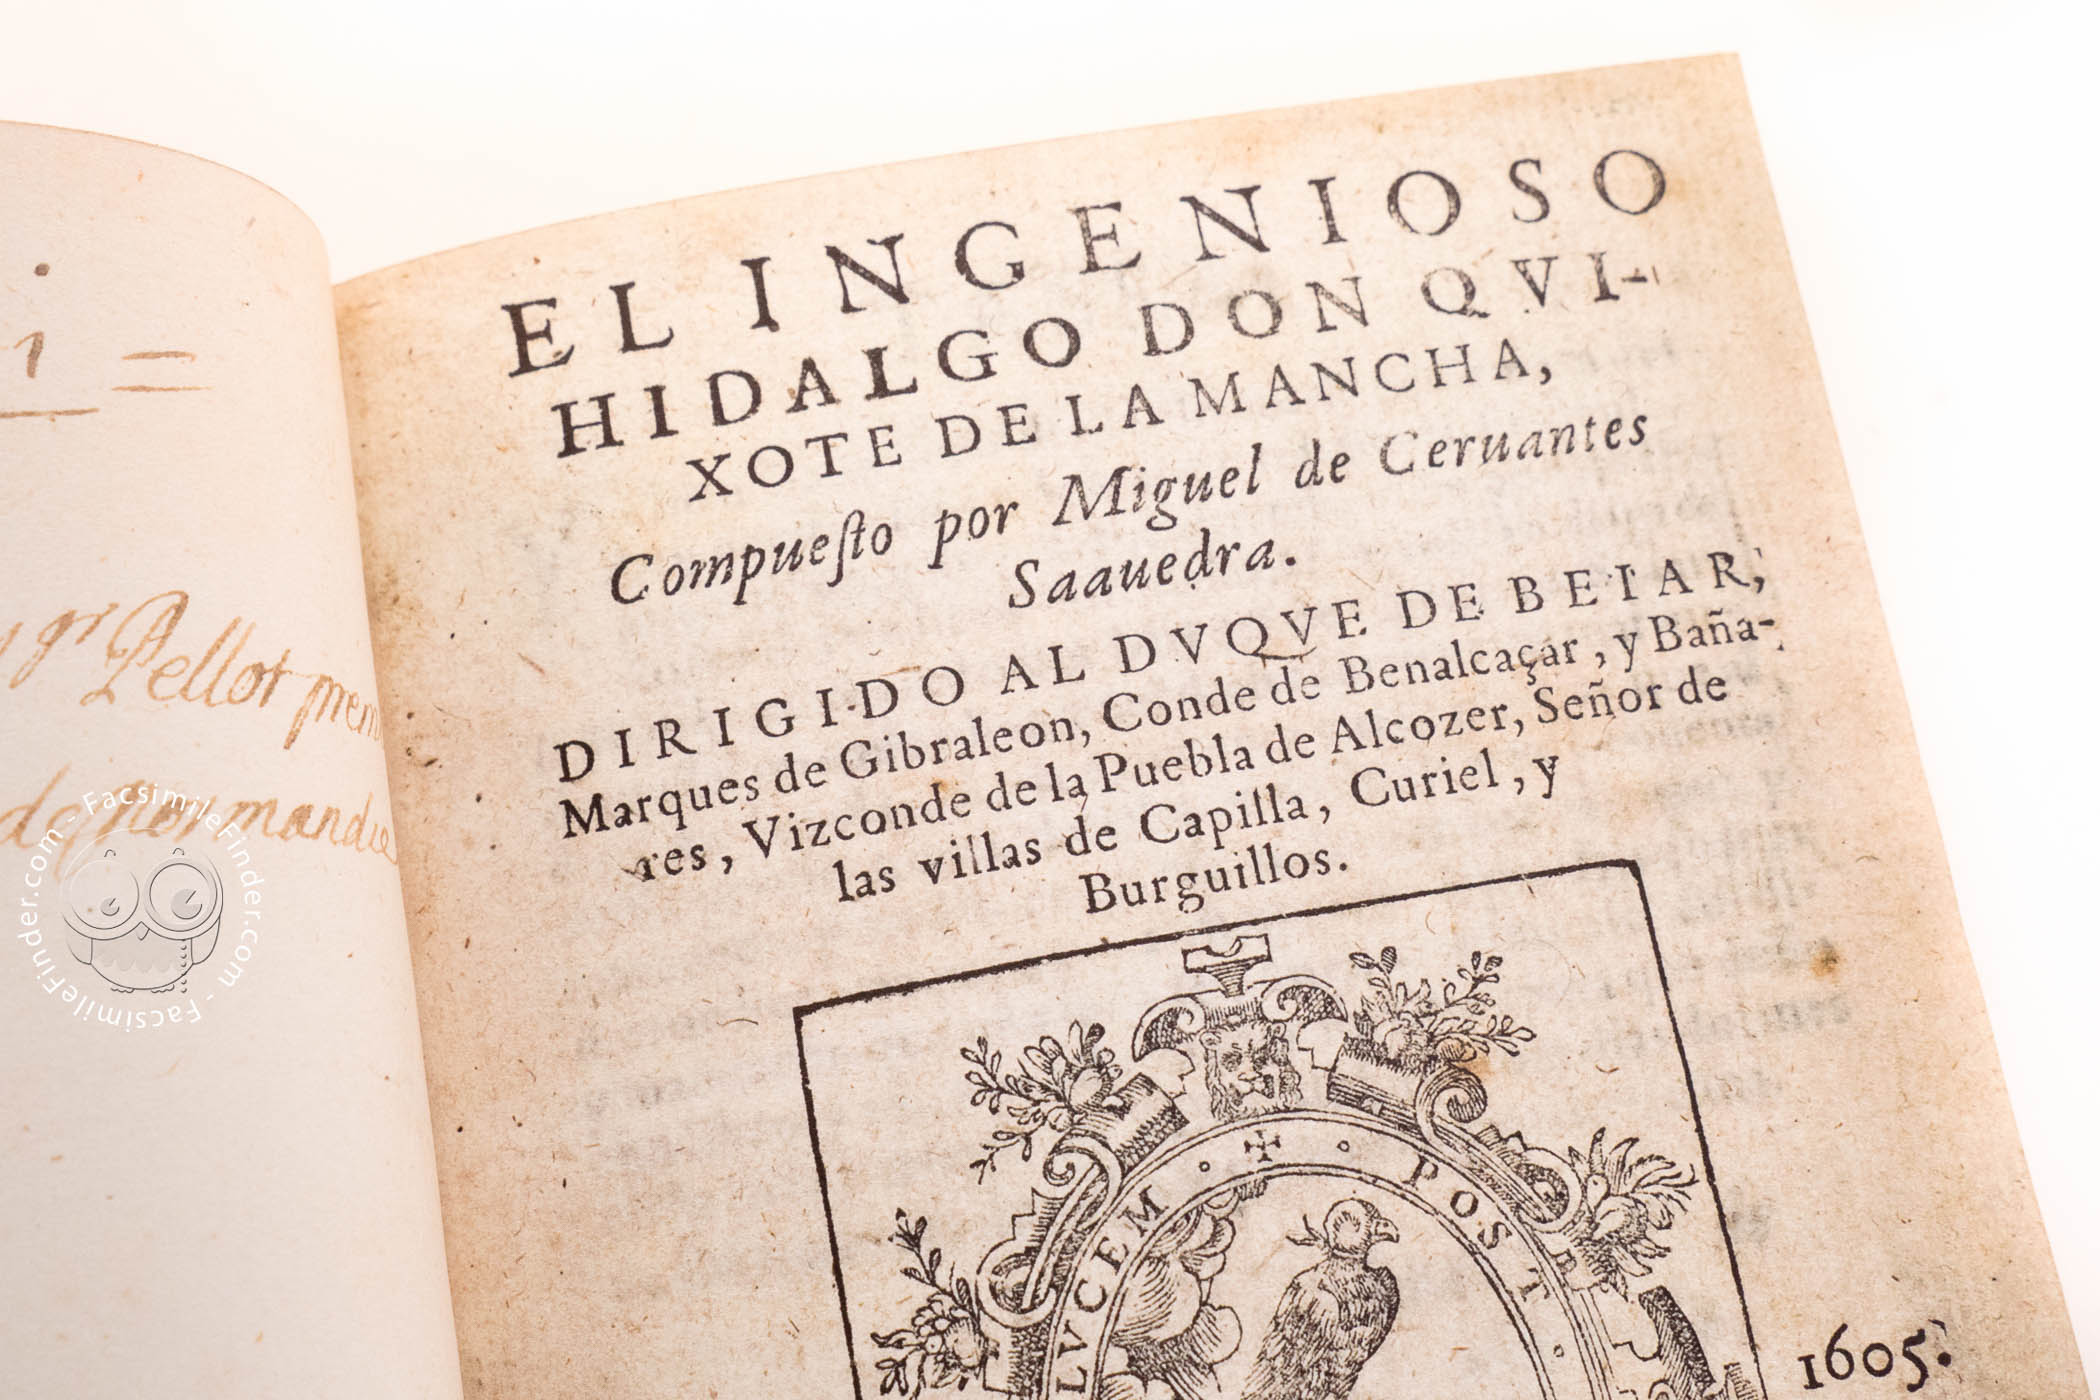 1 =
gr Pellot prem
de normandie
EL INGENIOSO
HIDALGO DON QVI-
XOTE DE LA MANCHA,
Compueſto por Miguel de Ceruantes
Saauedra.
DIRIGIDO AL DVQVE DE BEIAR,
Marques de Gibraleon, Conde de Benalcaçar, y Baña-
res, Vizconde de la Puebla de Alcozer, Señor de
las villas de Capilla, Curiel, y
Burguillos.
LVCEM · ✠ · POST T
1605.
FacsimileFinder.com - FacsimileFinder.com -